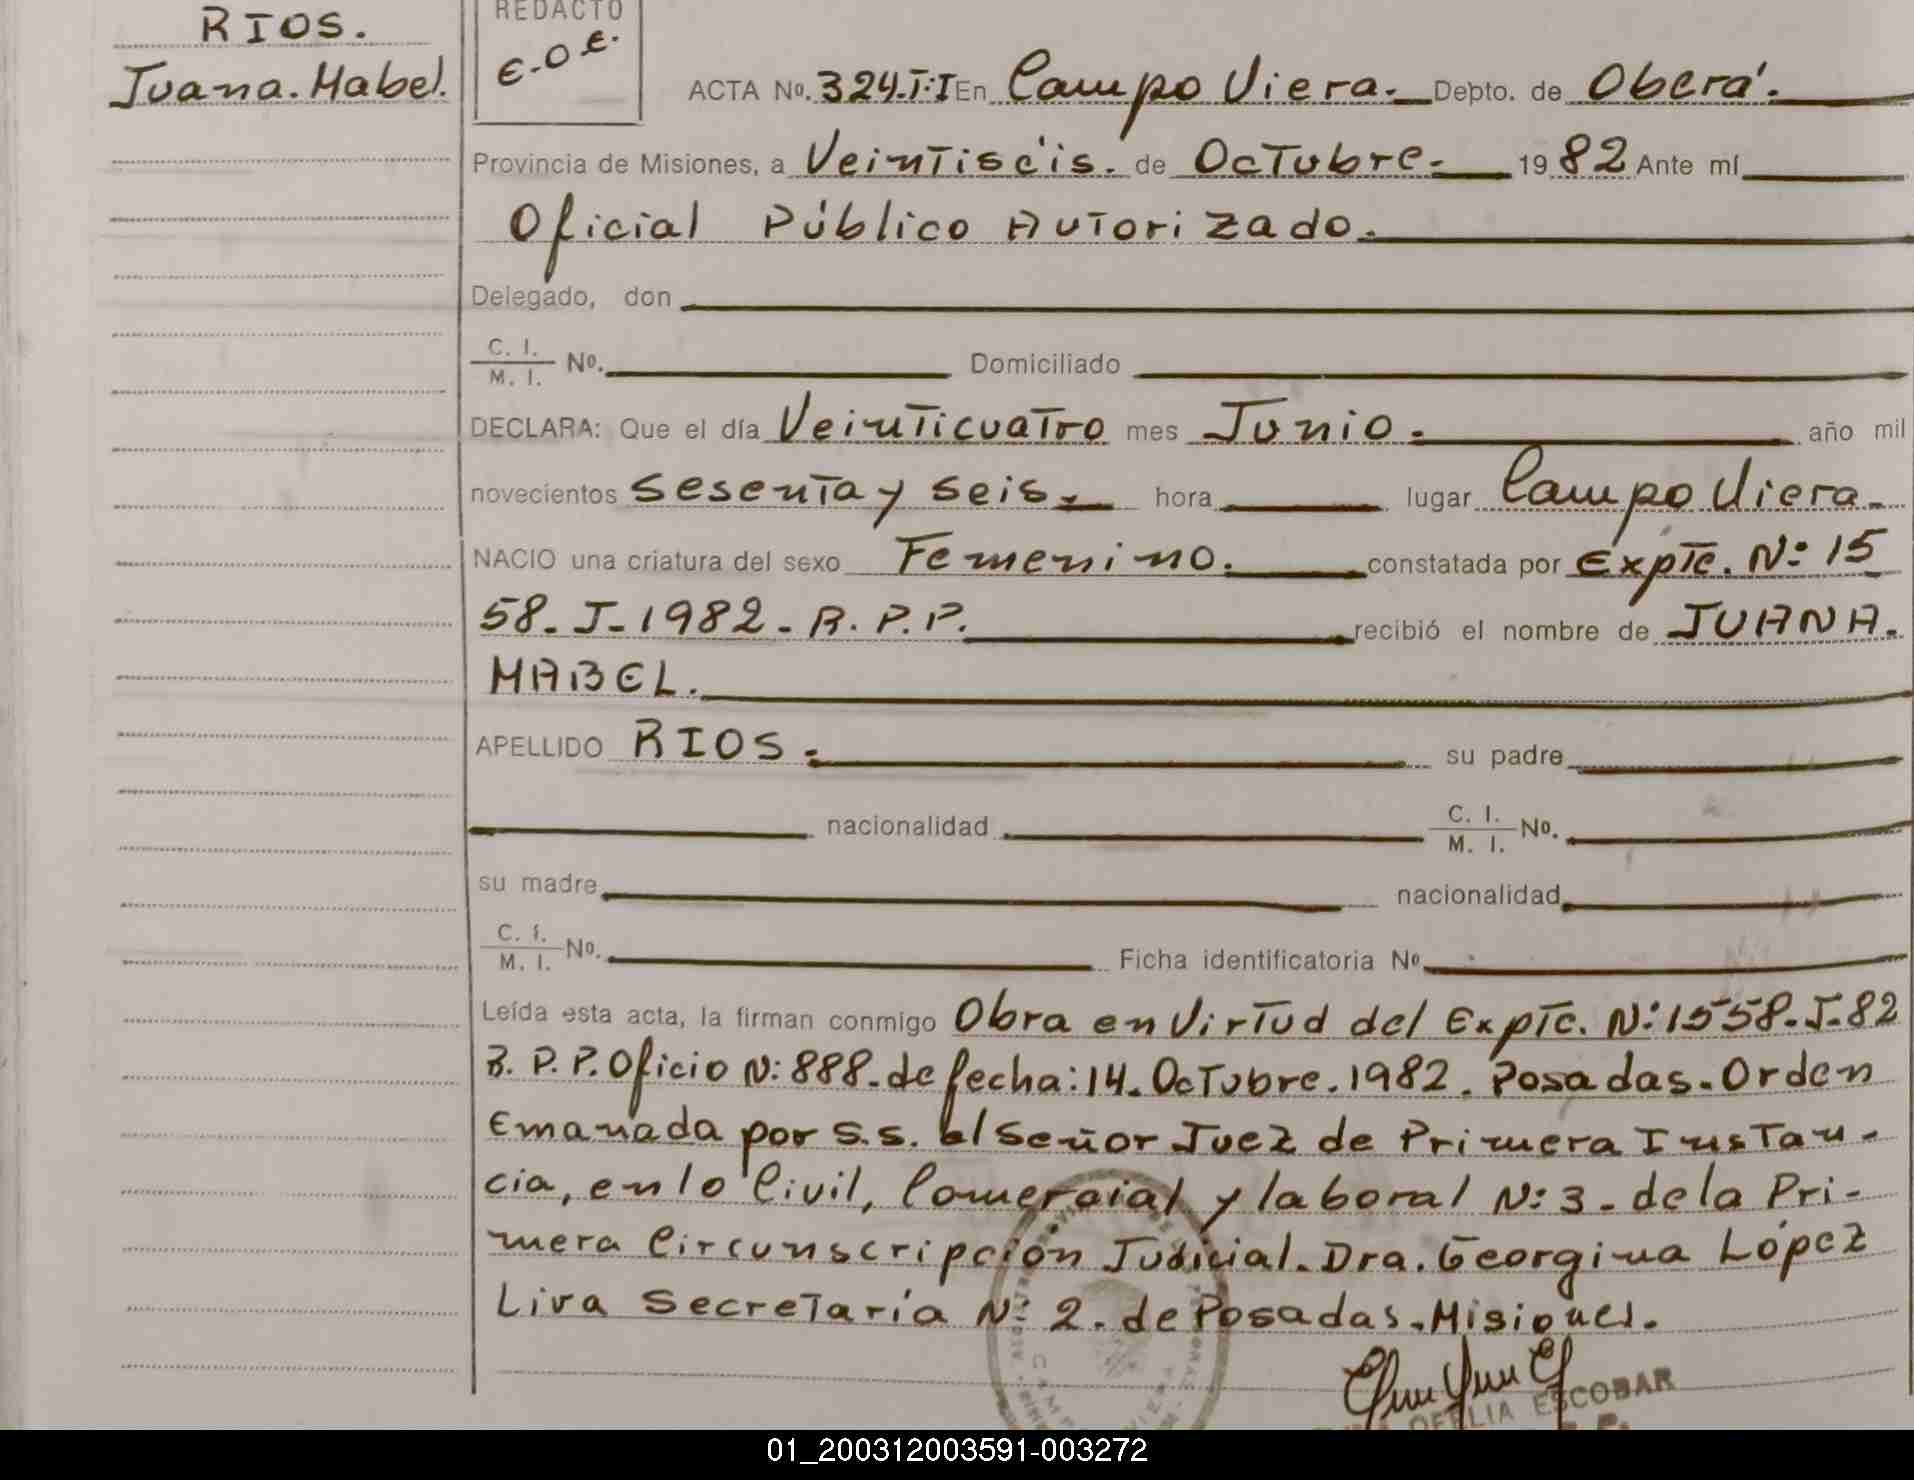 RIOS.
Juana. Mabel.
REDACTO
E.O.E.
ACTA Nº. 324.T:I En Campo Viera. Depto. de Oberá.
Provincia de Misiones, a Veintiséis. de Octubre. 1982 Ante mí
Oficial Público Autorizado.
Delegado, don
C. I. / M. I. Nº. Domiciliado
DECLARA: Que el día Veinticuatro mes Junio. año mil
novecientos Sesenta y Seis. hora lugar Campo Viera.
NACIO una criatura del sexo Femenino. constatada por Expte. Nº: 15
58. J-1982. R. P. P. recibió el nombre de JUANA.
MABEL.
APELLIDO RIOS. su padre
nacionalidad C. I. / M. I. Nº.
su madre nacionalidad
C. I. / M. I. Nº. Ficha identificatoria Nº
Leída esta acta, la firman conmigo Obra en Virtud del Expte. N: 1558. J-82
R. P. P. Oficio N: 888. de fecha: 14. Octubre. 1982. Posadas. Orden
Emanada por S.S. el Señor Juez de Primera Instan-
cia, en lo Civil, Comercial y laboral N: 3. de la Pri-
mera Circunscripción Judicial. Dra. Georgina López
Liva Secretaría N: 2. de Posadas. Misiones.
OFELIA ESCOBAR
01_200312003591-003272